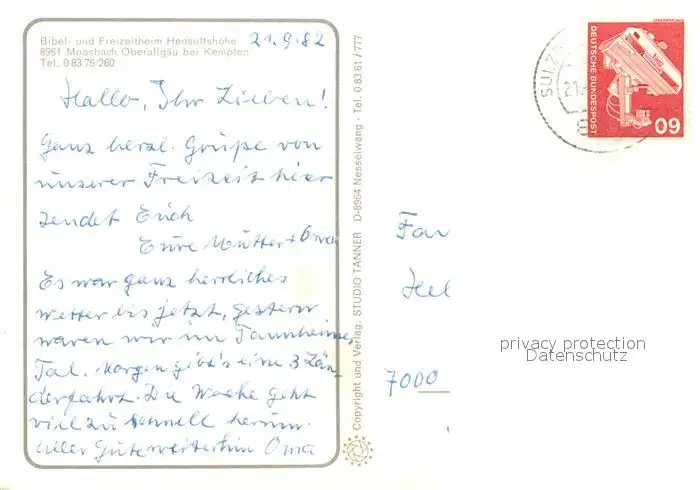 Bibel- und Freizeitheim Hensoltshöhe
8961 Moosbach Oberallgäu bei Kempten
Tel. 0 83 76/260
21.9.82
Hallo, Ihr Lieben!
Ganz herzl. Grüße von
unserer Freizeit hier
sendet Euch
Eure Mutter + Oma
Es war ganz herrliches
Wetter bis jetzt, gestern
waren wir im Tannheimer
Tal. Morgen gibt's eine 3 Län-
derfahrt. Die Woche geht
viel zu schnell herum.
Alles Gute weiterhin Oma
Copyright und Verlag: STUDIO TANNER D-8964 Nesselwang · Tel. 0 83 61 / 777
SULZ
21.
DEUTSCHE BUNDESPOST
60
Fam
Hel
7000
privacy protection
Datenschutz